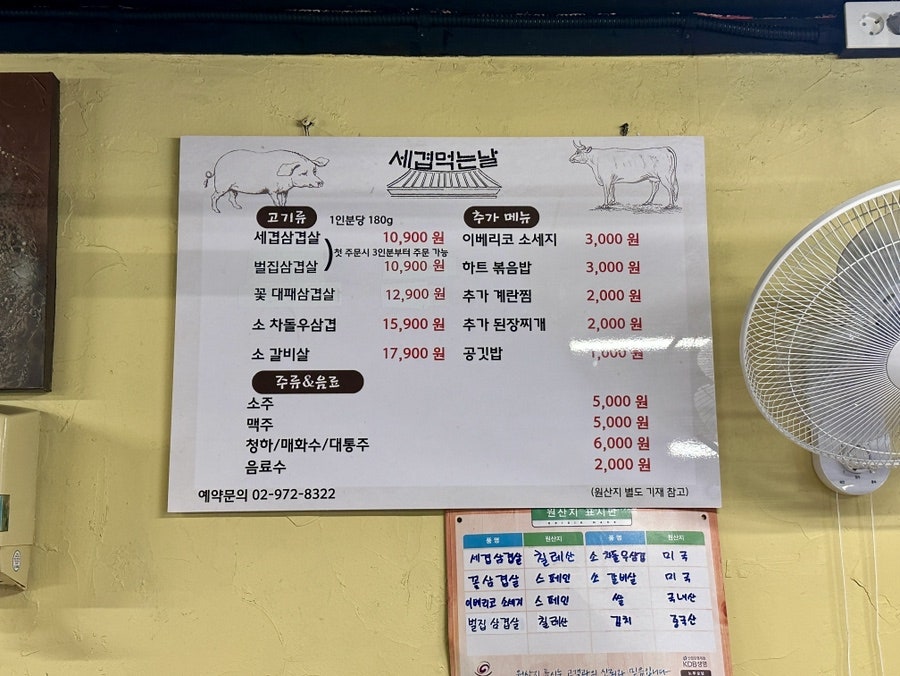 세겹먹는날
고기류 1인분당 180g
세겹삼겹살 10,900 원
첫 주문시 3인분부터 주문 가능
벌집삼겹살 10,900 원
꽃 대패삼겹살 12,900 원
소 차돌우삼겹 15,900 원
소 갈비살 17,900 원
추가 메뉴
이베리코 소세지 3,000 원
하트 볶음밥 3,000 원
추가 계란찜 2,000 원
추가 된장찌개 2,000 원
공깃밥 1,000 원
주류&음료
소주 5,000 원
맥주 5,000 원
청하/매화수/대통주 6,000 원
음료수 2,000 원
예약문의 02-972-8322 (원산지 별도 기재 참고)
원산지 표시판
품 명 원산지 품 명 원산지
세겹삼겹살 칠레산 소 차돌우삼겹 미국
꽃삼겹살 스페인 소 갈비살 미국
이베리코 소세지 스페인 쌀 국내산
벌집삼겹살 칠레산 김치 중국산
KDB생명
원산지 표시는 고객과의 신뢰와 믿음입니다